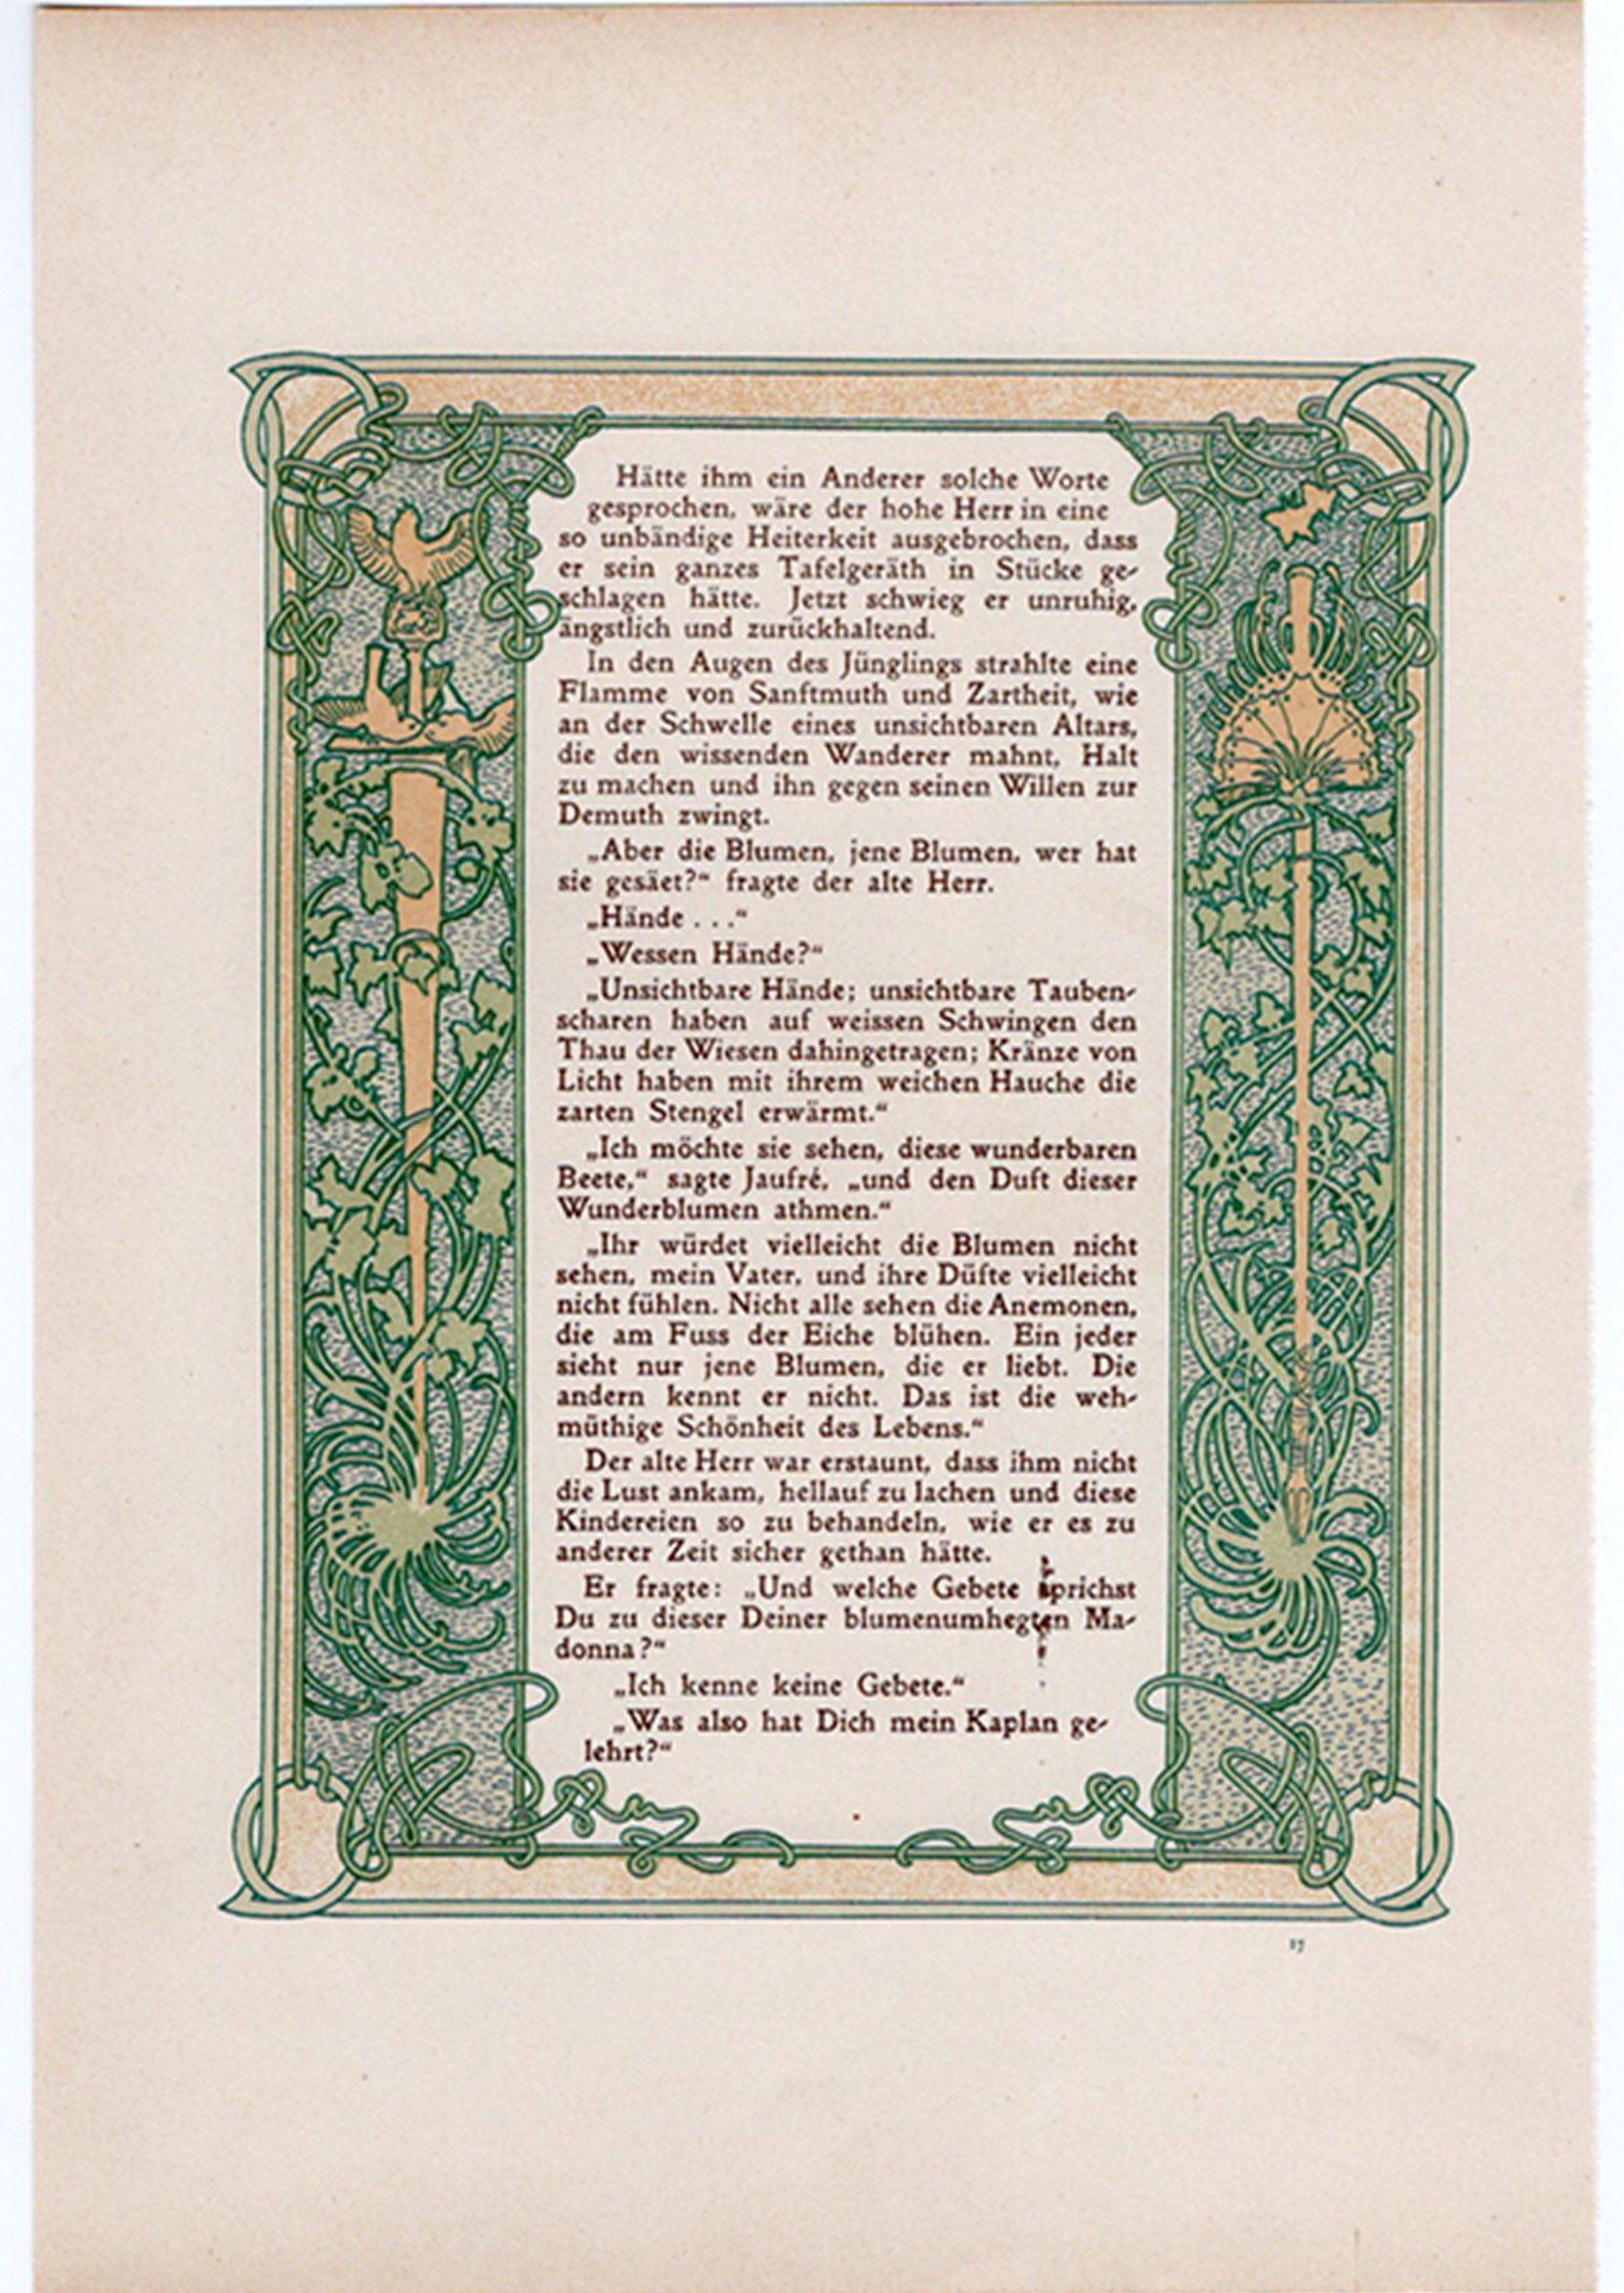 Hätte ihm ein Anderer solche Worte
gesprochen, wäre der hohe Herr in eine
so unbändige Heiterkeit ausgebrochen, dass
er sein ganzes Tafelgeräth in Stücke ge-
schlagen hätte. Jetzt schwieg er unruhig,
ängstlich und zurückhaltend.
In den Augen des Jünglings strahlte eine
Flamme von Sanftmuth und Zartheit, wie
an der Schwelle eines unsichtbaren Altars,
die den wissenden Wanderer mahnt, Halt
zu machen und ihn gegen seinen Willen zur
Demuth zwingt.
„Aber die Blumen, jene Blumen, wer hat
sie gesäet?“ fragte der alte Herr.
„Hände . . .“
„Wessen Hände?“
„Unsichtbare Hände; unsichtbare Tauben-
scharen haben auf weissen Schwingen den
Thau der Wiesen dahingetragen; Kränze von
Licht haben mit ihrem weichen Hauche die
zarten Stengel erwärmt.“
„Ich möchte sie sehen, diese wunderbaren
Beete,“ sagte Jaufré, „und den Duft dieser
Wunderblumen athmen.“
„Ihr würdet vielleicht die Blumen nicht
sehen, mein Vater, und ihre Düfte vielleicht
nicht fühlen. Nicht alle sehen die Anemonen,
die am Fuss der Eiche blühen. Ein jeder
sieht nur jene Blumen, die er liebt. Die
andern kennt er nicht. Das ist die weh-
müthige Schönheit des Lebens.“
Der alte Herr war erstaunt, dass ihm nicht
die Lust ankam, hellauf zu lachen und diese
Kindereien so zu behandeln, wie er es zu
anderer Zeit sicher gethan hätte.
Er fragte: „Und welche Gebete sprichst
Du zu dieser Deiner blumenumhegten Ma-
donna?“
„Ich kenne keine Gebete.“
„Was also hat Dich mein Kaplan ge-
lehrt?“
17